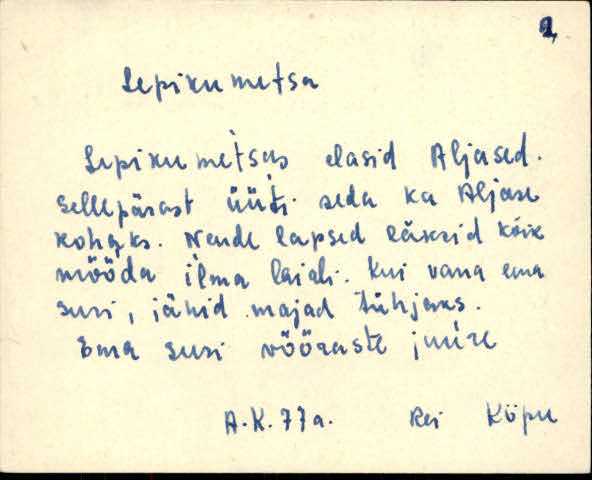 2,
Lepikumetsa
Lepikumetsas elasid Aljased.
Sellepärast üüti seda ka Aljase
kohaks. Nende lapsed läksid kõik
mööda ilma laiali. Kui vana ema
suri, jähid majad tühjaks.
Ema suri vööraste juure
A.K. 77a. Rei Kõpu